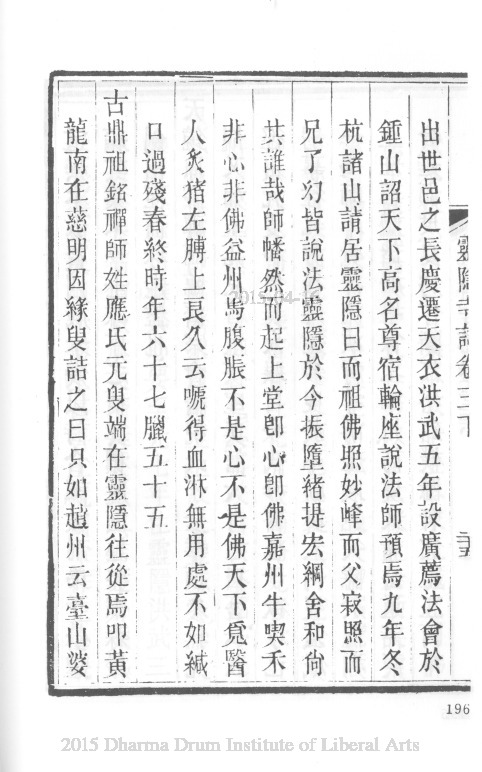 靈隱寺誌卷三下
出世邑之長慶遷天衣洪武五年設廣薦法會於
鍾山詔天下高名尊宿輪座說法師預焉九年冬
杭諸山請居靈隱曰而祖佛照妙峰而父寂照而
兄了幻皆說法靈隱於今振墮緒提宏綱舍和尙
共誰哉師幡然而起上堂卽心卽佛嘉州牛喫禾
非心非佛益州馬腹脹不是心不是佛天下覓醫
人炙猪左膊上良久云噦得血淋無用處不如緘
口過殘春終時年六十七臘五十五
古鼎祖銘禪師姓應氏元叟端在靈隱往從焉叩黃
龍南在慈明因緣叟詰之曰只如趙州云臺山婆
196
2015 Dharma Drum Institute of Liberal Arts